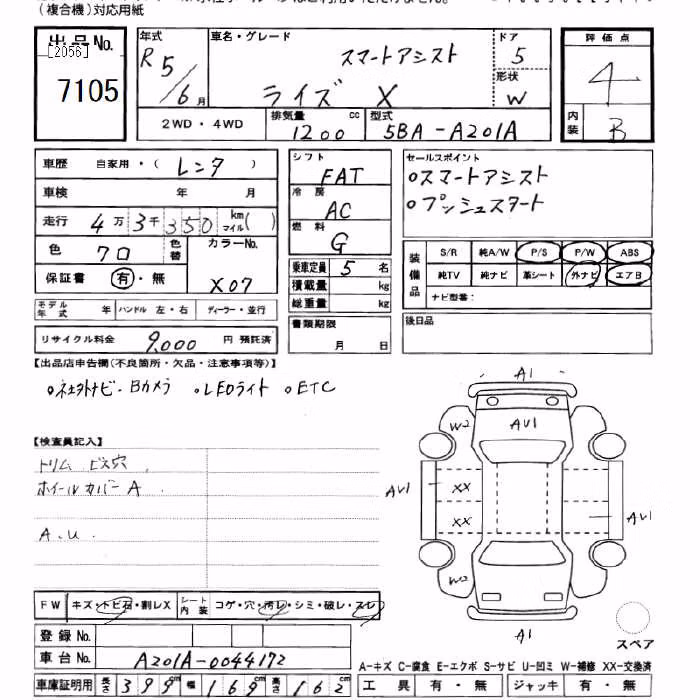 (複合機)対応用紙
出品No.
[2056]
7105
年式 R5/6月
車名・グレード スマートアシスト ライズ X
ドア 5
形状 W
評価点 4
内装 B
2WD・4WD
排気量 1200 cc
型式 5BA-A201A
車歴 自家用・(レンタ)
車検 年 月
走行 4万3千350 km マイル( )
色 クロ 色替 カラーNo. X07
保証書 有・無
モデル年式 年 ハンドル 左・右 ディーラー・並行
リサイクル料金 9,000 円 預託済
シフト FAT
冷房 AC
燃料 G
乗車定員 5 名
積載量 kg
総重量 kg
書類期限 月 日
セールスポイント
○スマートアシスト
○プッシュスタート
装備品
S/R 純A/W P/S P/W ABS
純TV 純ナビ 革シート 外ナビ エアB
ナビ型番:
後日品
【出品店申告欄(不良箇所・欠品・注意事項等)】
○社外ナビ・Bカメラ ○LEDライト ○ETC
【検査員記入】
トリム ビス穴
ホイールカバー A
A.U
A1
W2
AU1
AU1
XX
XX
AU1
W2
A1
スペア
FW キズ・トビ石・割レX シート内装 コゲ・穴・汚レ・シミ・破レ・スレ
登録No.
車台No. A201A-0044172
車庫証明用 長さ 399cm 幅 169cm 高さ 162cm
A-キズ C-腐食 E-エクボ S-サビ U-凹ミ W-補修 XX-交換済
工具 有・無 ジャッキ 有・無